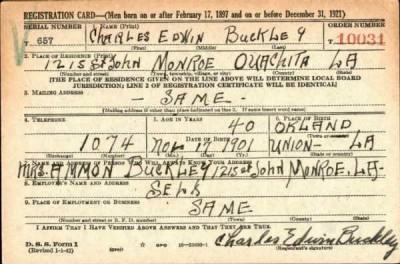 REGISTRATION CARD—(Men born on or after February 17, 1897 and on or before December 31, 1921)
SERIAL NUMBER 1. NAME (Print) ORDER NUMBER
T 657 CHARLES EDWIN BUCKLEY T 10031
(First) (Middle) (Last)
2. PLACE OF RESIDENCE (Print)
1215 St John MONROE OUACHITA LA
(Number and street) (Town, township, village, or city) (County) (State)
[THE PLACE OF RESIDENCE GIVEN ON THE LINE ABOVE WILL DETERMINE LOCAL BOARD
JURISDICTION; LINE 2 OF REGISTRATION CERTIFICATE WILL BE IDENTICAL]
3. MAILING ADDRESS
- SAME -
[Mailing address if other than place indicated on line 2. If same insert word same]
4. TELEPHONE 5. AGE IN YEARS PLACE OF BIRTH
40 OKLAND
DATE OF BIRTH (Town or county)
1074 NOV 17 1901 UNION - LA
(Exchange) (Number) (Mo.) (Day) (Yr.) (State or country)
7. NAME AND ADDRESS OF PERSON WHO WILL ALWAYS KNOW YOUR ADDRESS
MRS. AMMON BUCKLEY 1215 St JOHN MONROE, LA-
8. EMPLOYER'S NAME AND ADDRESS
SELF
9. PLACE OF EMPLOYMENT OR BUSINESS
SAME
(Number and street or R. F. D. number) (Town) (County) (State)
I AFFIRM THAT I HAVE VERIFIED ABOVE ANSWERS AND THAT THEY ARE TRUE.
D. S. S. Form 1
(Revised 1-1-42) GPO Charles Edwin Buckley
(Registrant's signature)